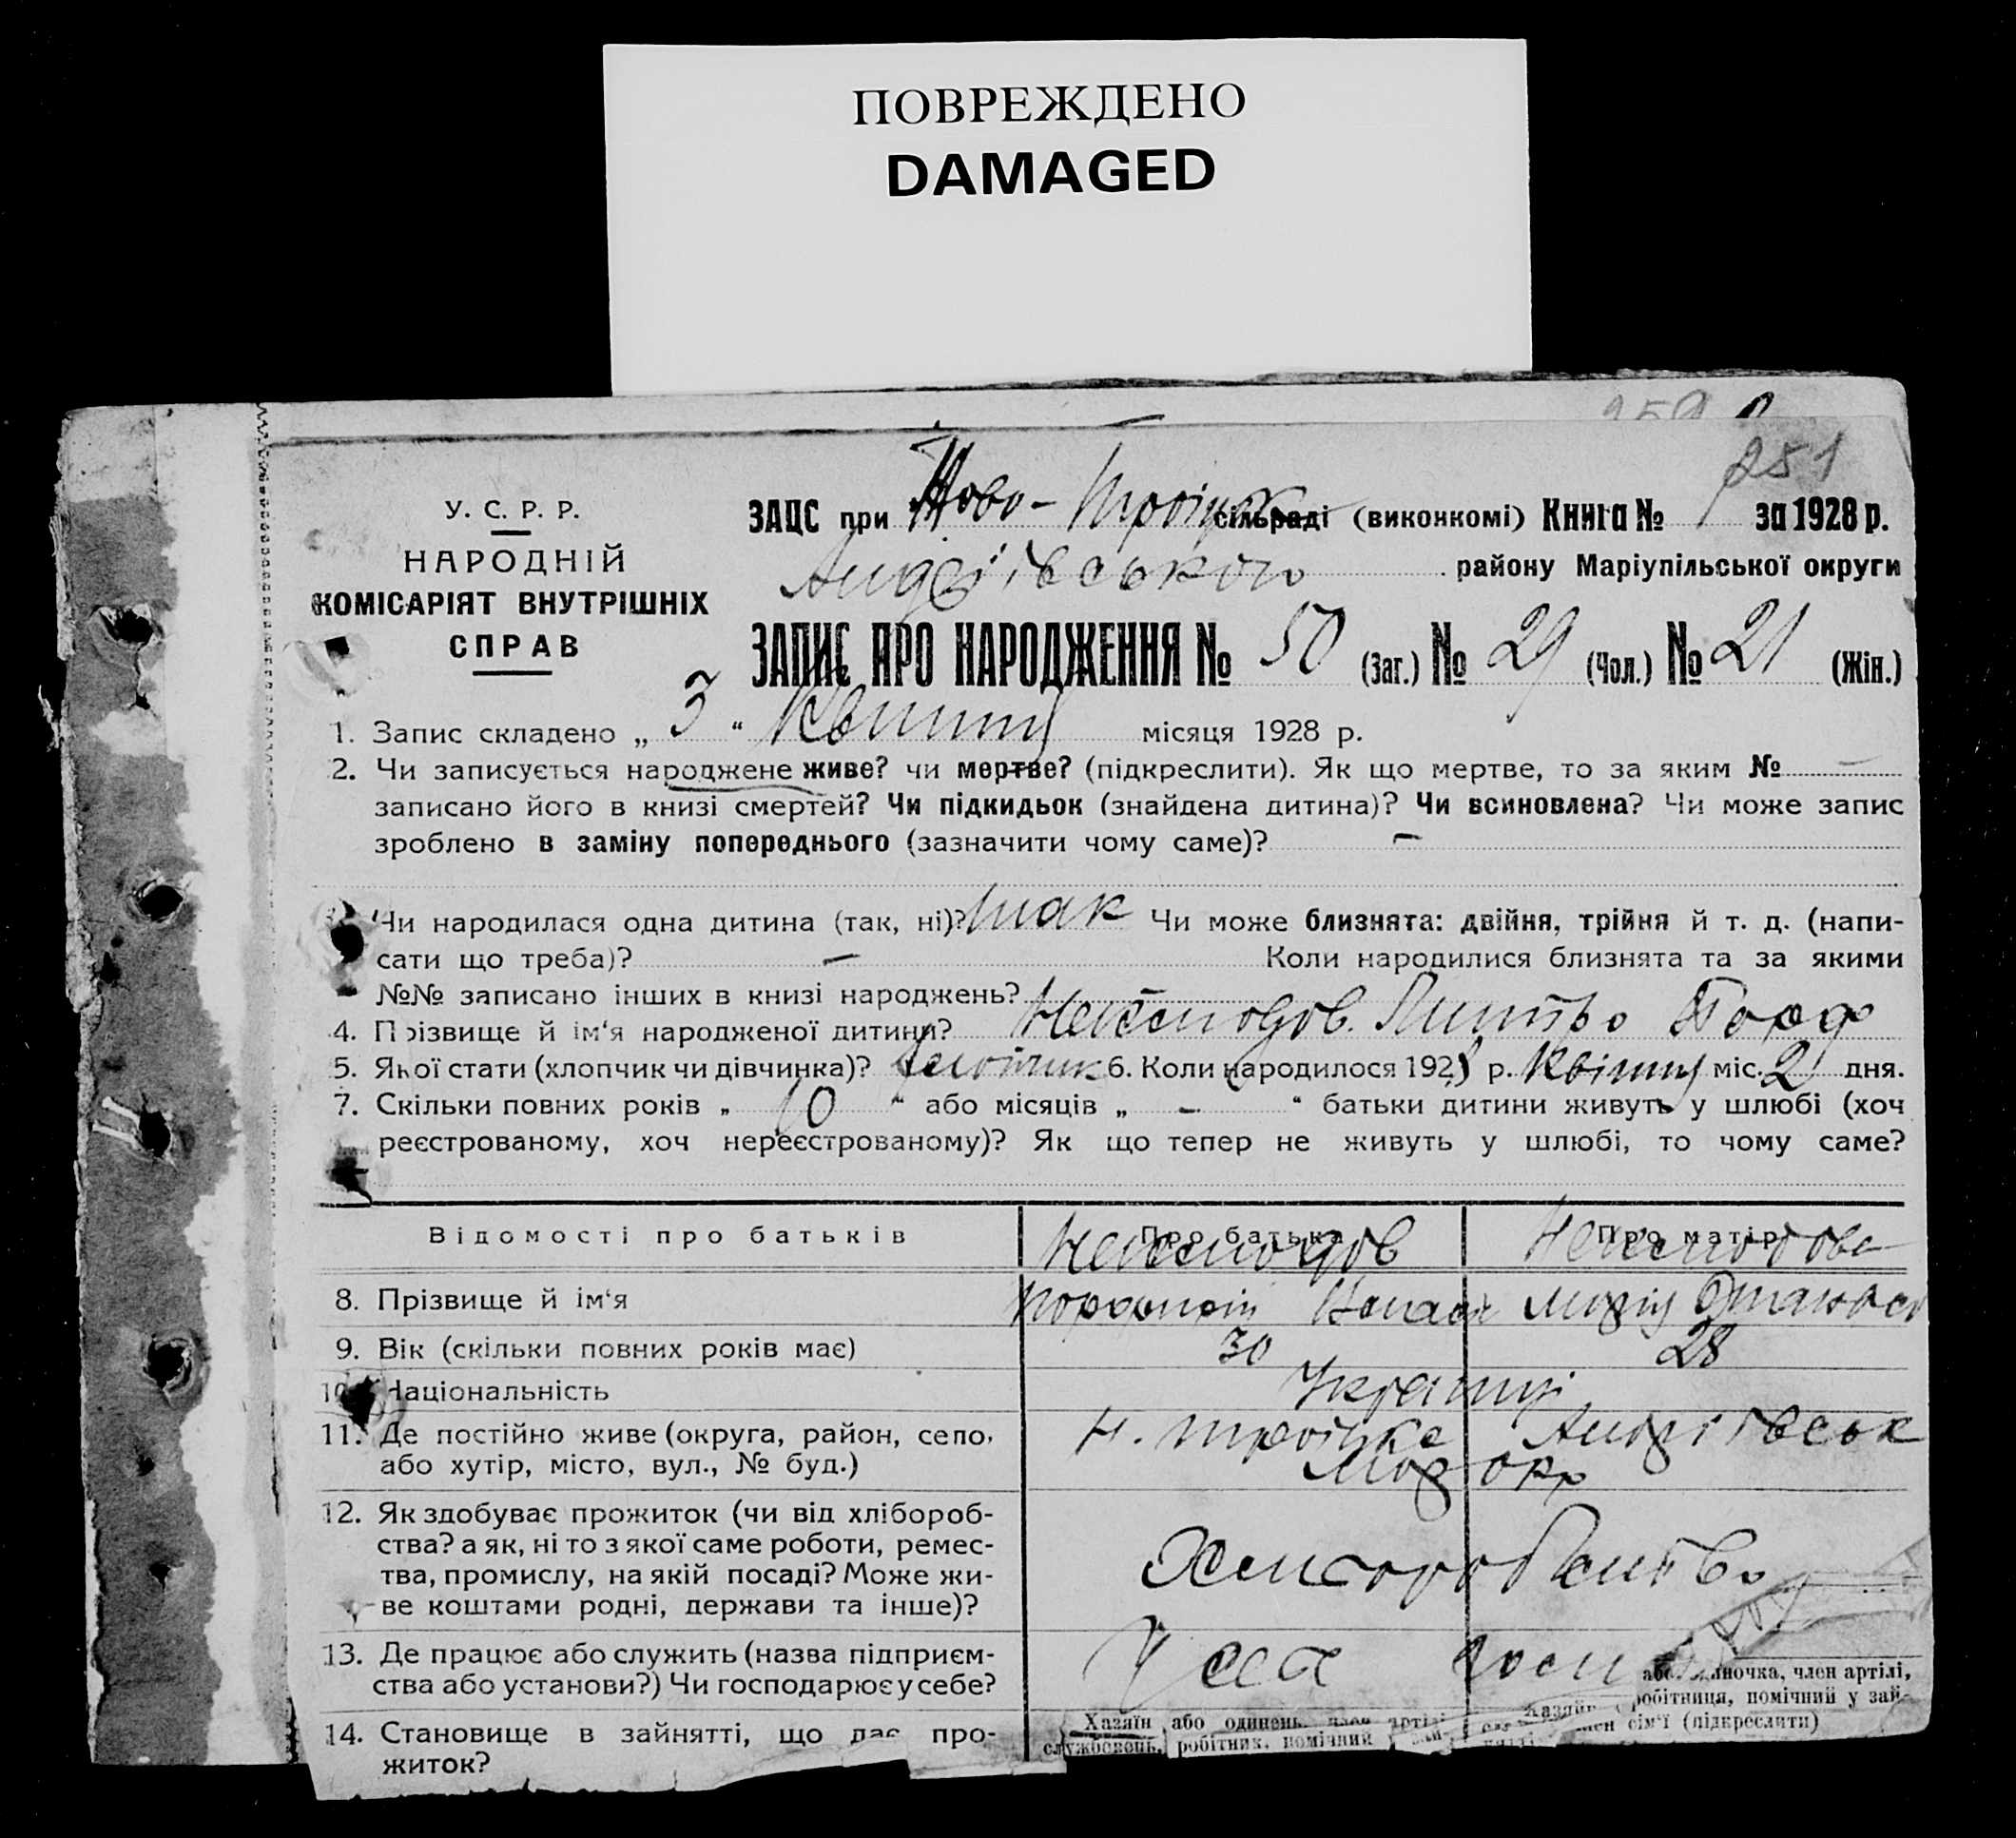 ПОВРЕЖДЕНО
DAMAGED
251
У. С. Р. Р.
НАРОДНІЙ
КОМІСАРІЯТ ВНУТРІШНІХ
СПРАВ
ЗАЦС при Ново - Троїцьк сільраді (виконкомі) Книга № 1 за 1928 р.
Андріївського району Маріупільської округи
ЗАПИС ПРО НАРОДЖЕННЯ № 50 (Заг.) № 29 (Чол.) № 21 (Жін.)
1. Запис складено „ 3 “ Квітня місяця 1928 р.
2. Чи записується народжене живе? чи мертве? (підкреслити). Як що мертве, то за яким № —
записано його в книзі смертей? Чи підкидьок (знайдена дитина)? Чи всиновлена? Чи може запис
зроблено в заміну попереднього (зазначити чому саме)? —
Чи народилася одна дитина (так, ні)? так Чи може близнята: двійня, трійня й т. д. (напи-
сати що треба)? — Коли народилися близнята та за якими
№№ записано інших в книзі народжень?
4. Прізвище й ім‘я народженої дитини?
5. Якої стати (хлопчик чи дівчинка)? Хлопчик 6. Коли народилося 1928 р. Квітня міс. 2 дня.
7. Скільки повних років „ 10 “ або місяців „ — “ батьки дитини живуть у шлюбі (хоч
реєстрованому, хоч нереєстрованому)? Як що тепер не живуть у шлюбі, то чому саме?
Відомості про батьків Про батька Про матір
8. Прізвище й ім‘я
9. Вік (скільки повних років має) 30 28
10. Національність Українці
11. Де постійно живе (округа, район, село, Н. Троїцьке Андріївськ
або хутір, місто, вул., № буд.) окр
12. Як здобуває прожиток (чи від хлібороб-
ства? а як, ні то з якої саме роботи, ремес-
тва, промислу, на якій посаді? Може жи-
ве коштами родні, держави та інше)?
13. Де працює або служить (назва підприєм-
ства або установи?) Чи господарює у себе? У себе
14. Становище в зайнятті, що дає про-
житок?
Хазяїн або одинець, член артілі
службовець, робітник, помічний
член артілі,
робітниця, помічний у зай-
член сім‘ї (підкреслити)